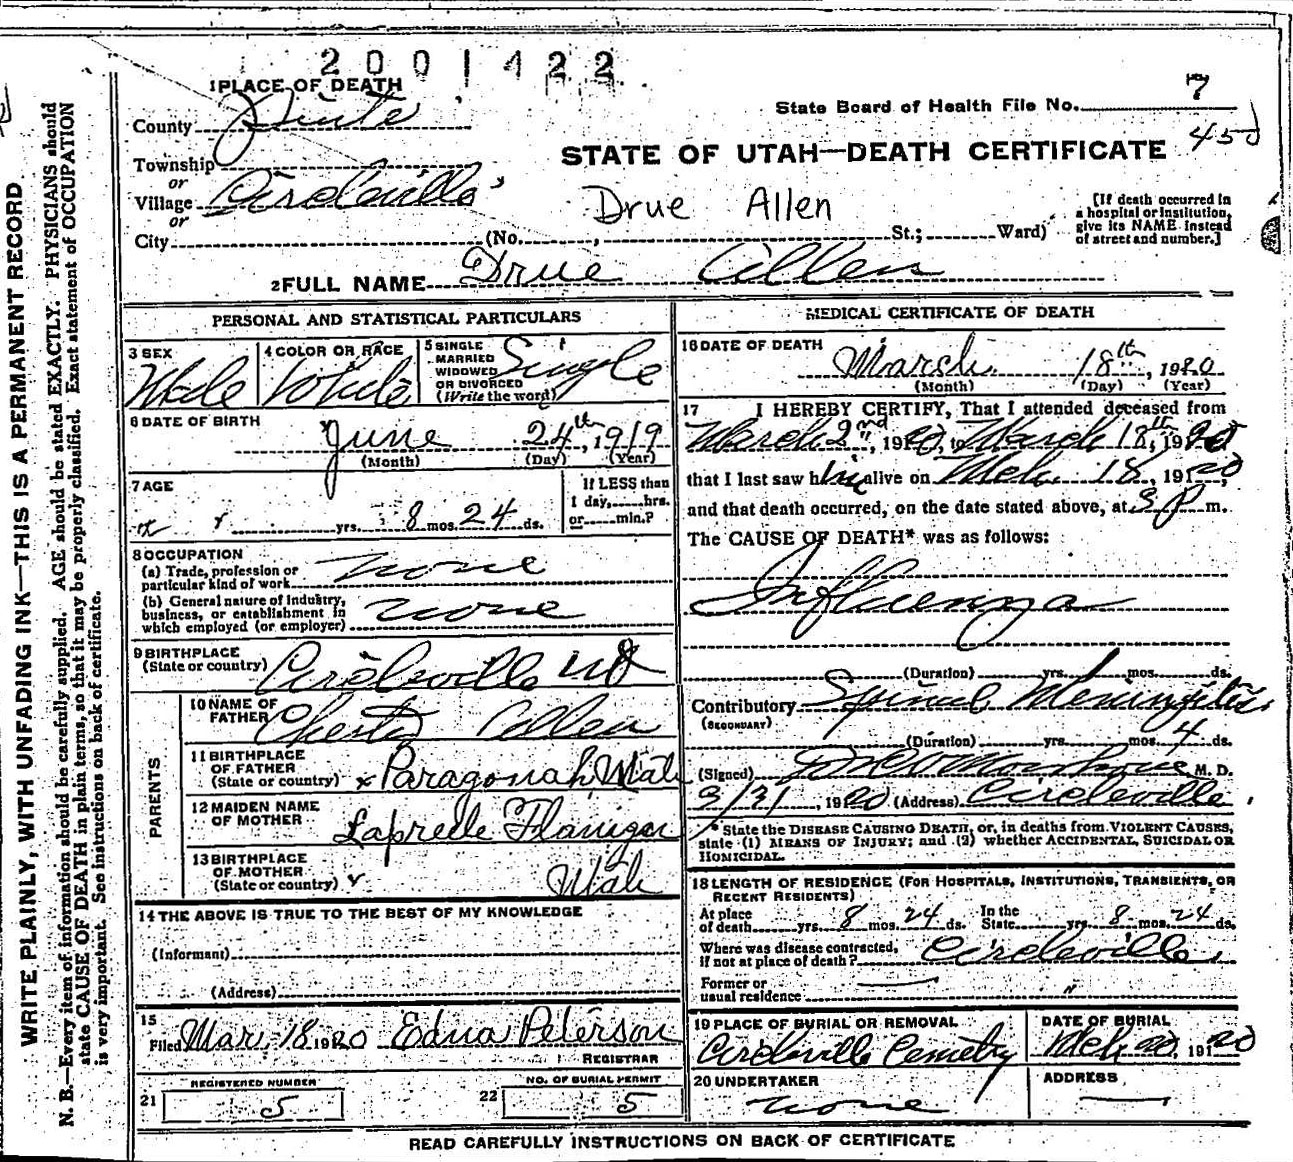 2001422
1 PLACE OF DEATH
State Board of Health File No. 7
County Piute
450
STATE OF UTAH—DEATH CERTIFICATE
Township
or
Village Circleville
or
Drue Allen
[If death occurred in
a hospital or institution,
give its NAME instead
of street and number.]
City (No. , St.; Ward)
2 FULL NAME Drue Allen
PERSONAL AND STATISTICAL PARTICULARS
3 SEX Male
4 COLOR OR RACE White
5 SINGLE
MARRIED
WIDOWED
OR DIVORCED
(Write the word) Single
6 DATE OF BIRTH
June 24th, 1919
(Month) (Day) (Year)
7 AGE
yrs. 8 mos. 24 ds.
If LESS than
1 day, hrs.
or min.?
8 OCCUPATION
(a) Trade, profession or
particular kind of work none
(b) General nature of industry,
business, or establishment in
which employed (or employer) none
9 BIRTHPLACE
(State or country) Circleville Ut
PARENTS
10 NAME OF
FATHER Chester Allen
11 BIRTHPLACE
OF FATHER
(State or country) x Paragonah, Utah
12 MAIDEN NAME
OF MOTHER Laprele Flanigan
13 BIRTHPLACE
OF MOTHER
(State or country) Utah
14 THE ABOVE IS TRUE TO THE BEST OF MY KNOWLEDGE
(Informant)
(Address)
15
Filed Mar. 18 1920 Edna Peterson
REGISTRAR
REGISTERED NUMBER
21 5
NO. OF BURIAL PERMIT
22 5
MEDICAL CERTIFICATE OF DEATH
16 DATE OF DEATH
March 18th, 1920
(Month) (Day) (Year)
17 I HEREBY CERTIFY, That I attended deceased from
March 2nd, 1920, to March 18th, 1920
that I last saw him alive on Mch. 18, 1920,
and that death occurred, on the date stated above, at 3 p m.
The CAUSE OF DEATH* was as follows:
Influenza
(Duration) yrs. 1 mos. ds.
Contributory Spinal Meningitis
(SECONDARY)
(Duration) yrs. mos. 4 ds.
(Signed) M. D.
3/21, 1920 (Address) Circleville.
* State the DISEASE CAUSING DEATH, or, in deaths from VIOLENT CAUSES,
state (1) MEANS OF INJURY; and (2) whether ACCIDENTAL, SUICIDAL OR
HOMICIDAL.
18 LENGTH OF RESIDENCE (FOR HOSPITALS, INSTITUTIONS, TRANSIENTS, OR
RECENT RESIDENTS)
At place
of death yrs. 8 mos. 24 ds. In the
State yrs. 8 mos. 24 ds.
Where was disease contracted,
if not at place of death? Circleville.
Former or
usual residence — "
19 PLACE OF BURIAL OR REMOVAL
Circleville Cemetry
DATE OF BURIAL
Mch 20, 1920
20 UNDERTAKER
none
ADDRESS
—
READ CAREFULLY INSTRUCTIONS ON BACK OF CERTIFICATE
WRITE PLAINLY, WITH UNFADING INK—THIS IS A PERMANENT RECORD.
N. B.—Every item of information should be carefully supplied. AGE should be stated EXACTLY. PHYSICIANS should
state CAUSE OF DEATH in plain terms, so that it may be properly classified. Exact statement of OCCUPATION
is very important. See instructions on back of certificate.